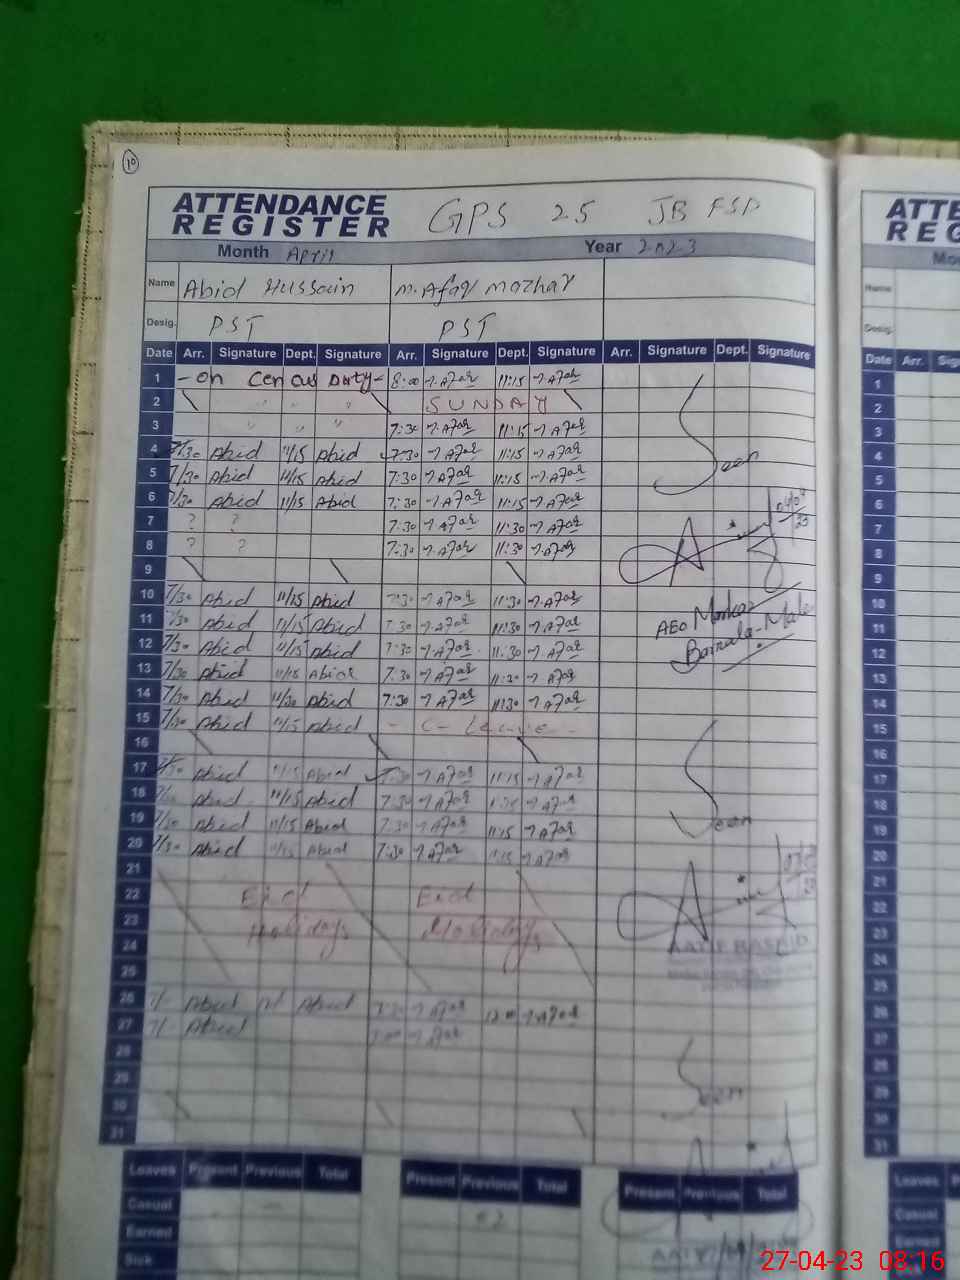 10
ATTENDANCE REGISTER GPS 25 JB FSD
Month April Year 2023
Name Abid Hussain M. Afaq Mazhar
Desig. PST PST
Date Arr. Signature Dept. Signature Arr. Signature Dept. Signature Arr. Signature Dept. Signature
1 - on Census Duty - 8:00 Afaq 11:15 Afaq
2 " " " SUNDAY
3 " " " 7:30 Afaq 11:15 Afaq
4 7/30 Abid 11/15 Abid 7:30 Afaq 11:15 Afaq Seen
5 7/30 Abid 11/15 Abid 7:30 Afaq 11:15 Afaq
6 7/30 Abid 11/15 Abid 7:30 Afaq 11:15 Afaq
7 ? ? 7:30 Afaq 11:30 Afaq
8 ? ? 7:30 Afaq 11:30 Afaq
9
10 7/30 Abid 11/15 Abid 7:30 Afaq 11:30 Afaq
11 7/30 Abid 11/15 Abid 7:30 Afaq 11:30 Afaq AEO Markaz
12 7/30 Abid 11/15 Abid 7:30 Afaq 11:30 Afaq
13 7/30 Abid 11/15 Abid 7:30 Afaq 11:30 Afaq
14 7/30 Abid 11/30 Abid 7:30 Afaq 11:30 Afaq
15 7/30 Abid 11/15 Abid - C - Leave -
16
17 7/30 Abid 11/15 Abid 7:30 Afaq 11:15 Afaq
18 Abid 11/15 Abid 7:30 Afaq Afaq
19 7/30 Abid 11/15 Abid 7:30 Afaq 11:15 Afaq Seen
20 7/30 Abid 11/15 Abid 7:30 Afaq 11:15 Afaq
21
22 Eid Eid
23 Holidays Holidays
24 AATIF RASHID
25
26 7/- Abid Abid 7:30 Afaq 12:00 Afaq
27 7/- Abid Afaq
28
29 Seen
30
31
Leaves Present Previous Total Present Previous Total Present Previous Total
Casual
Earned
Sick
ATTE
REG
Mo
Name
Desig.
Date Arr. Sig
1
2
3
4
5
6
7
8
9
10
11
12
13
14
15
16
17
18
19
20
21
22
23
24
25
26
27
28
29
30
31
Leaves P
Casual
Earned
27-04-23 08:16